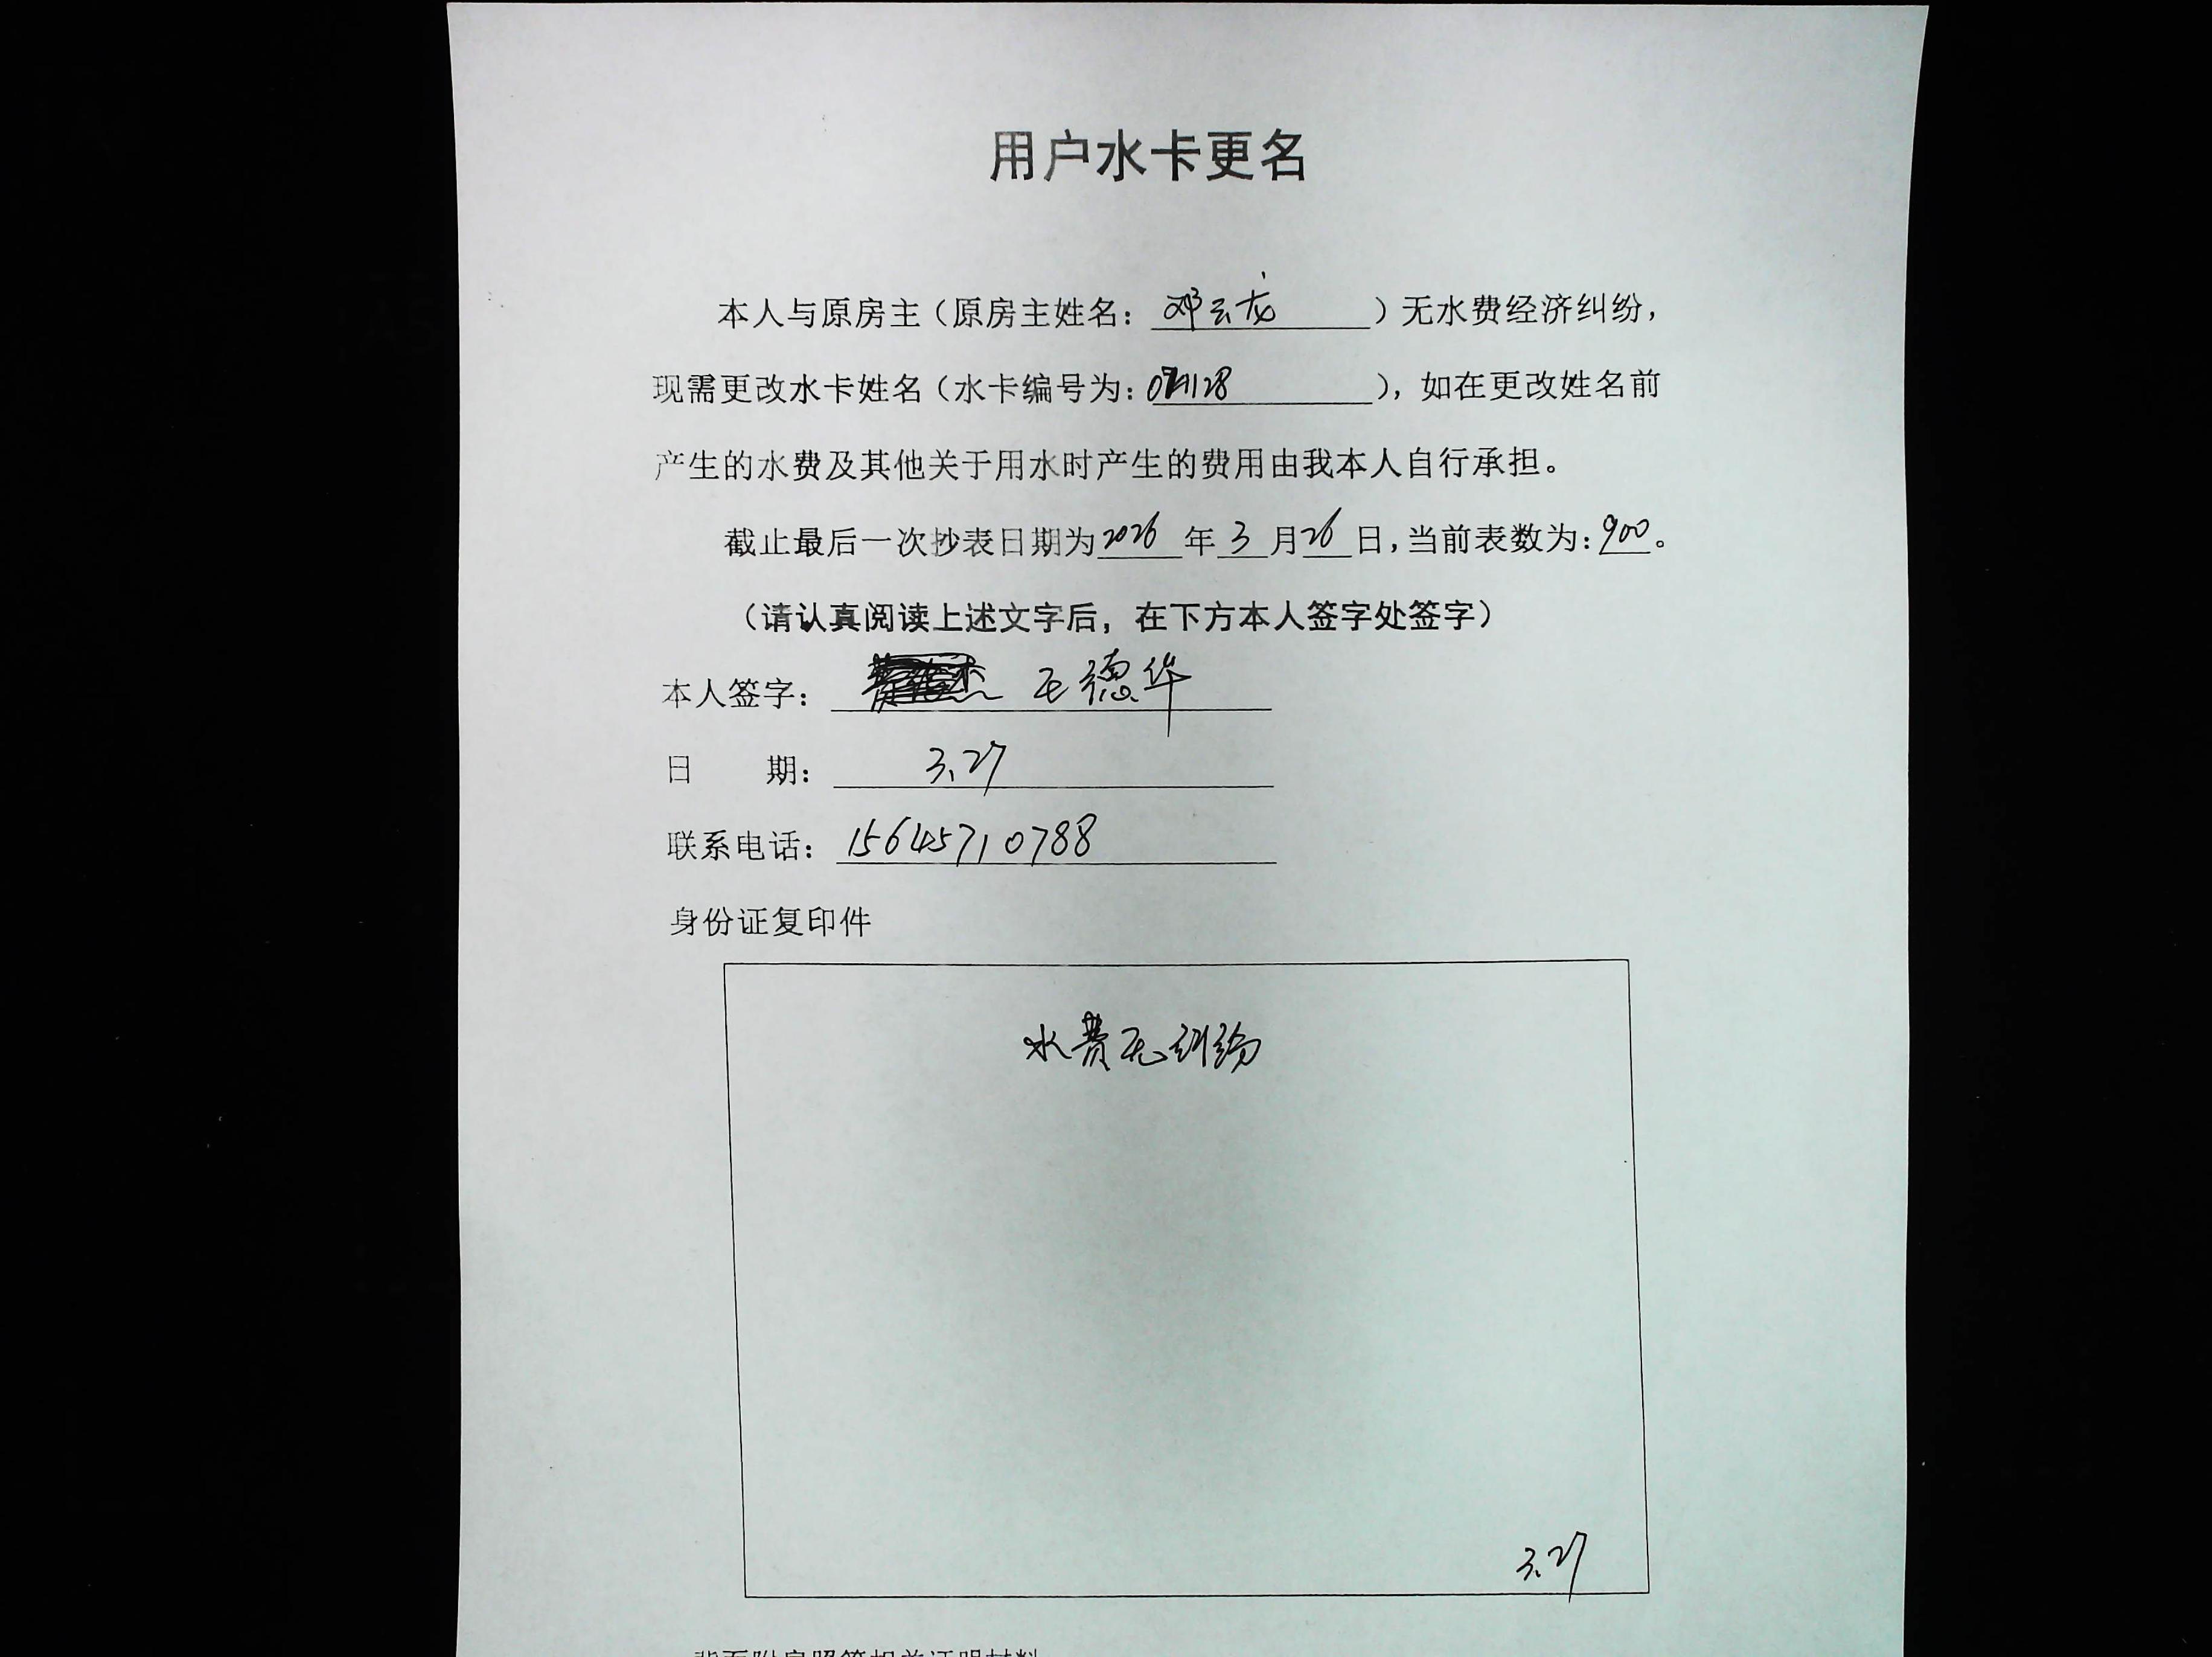 用户水卡更名
本人与原房主（原房主姓名：邓云龙）无水费经济纠纷，
现需更改水卡姓名（水卡编号为：），如在更改姓名前
产生的水费及其他关于用水时产生的费用由我本人自行承担。
截止最后一次抄表日期为2026年3月26日，当前表数为：900。
（请认真阅读上述文字后，在下方本人签字处签字）
本人签字：王德华
日 期：3.27
联系电话：15645710788
身份证复印件
水费无纠纷
3.27
背面附房照等相关证明材料